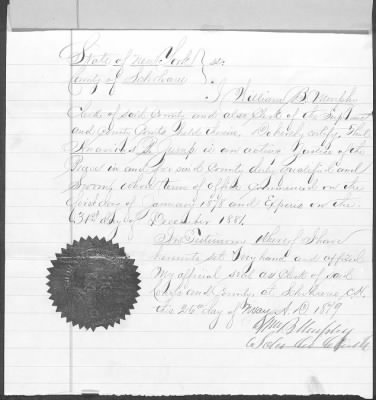 State of New York } ss.
County of Schoharie
I William B Murphy
Clerk of said County and also Clerk of the Supreme
and County Courts held therein, Do hereby certify, That
is an acting Justice of the
Peace in and for said County duly qualified and
Sworn, whose term of office commenced on the
first day of January 1878 and Expires on the
31st day of December 1881.
In Testimony Whereof I have
hereunto set my hand and affixed
My official seal as Clerk of said
Courts and County at Schoharie, C.H.
this 26th day of May A.D. 1879
Wm B Murphy
Clerk